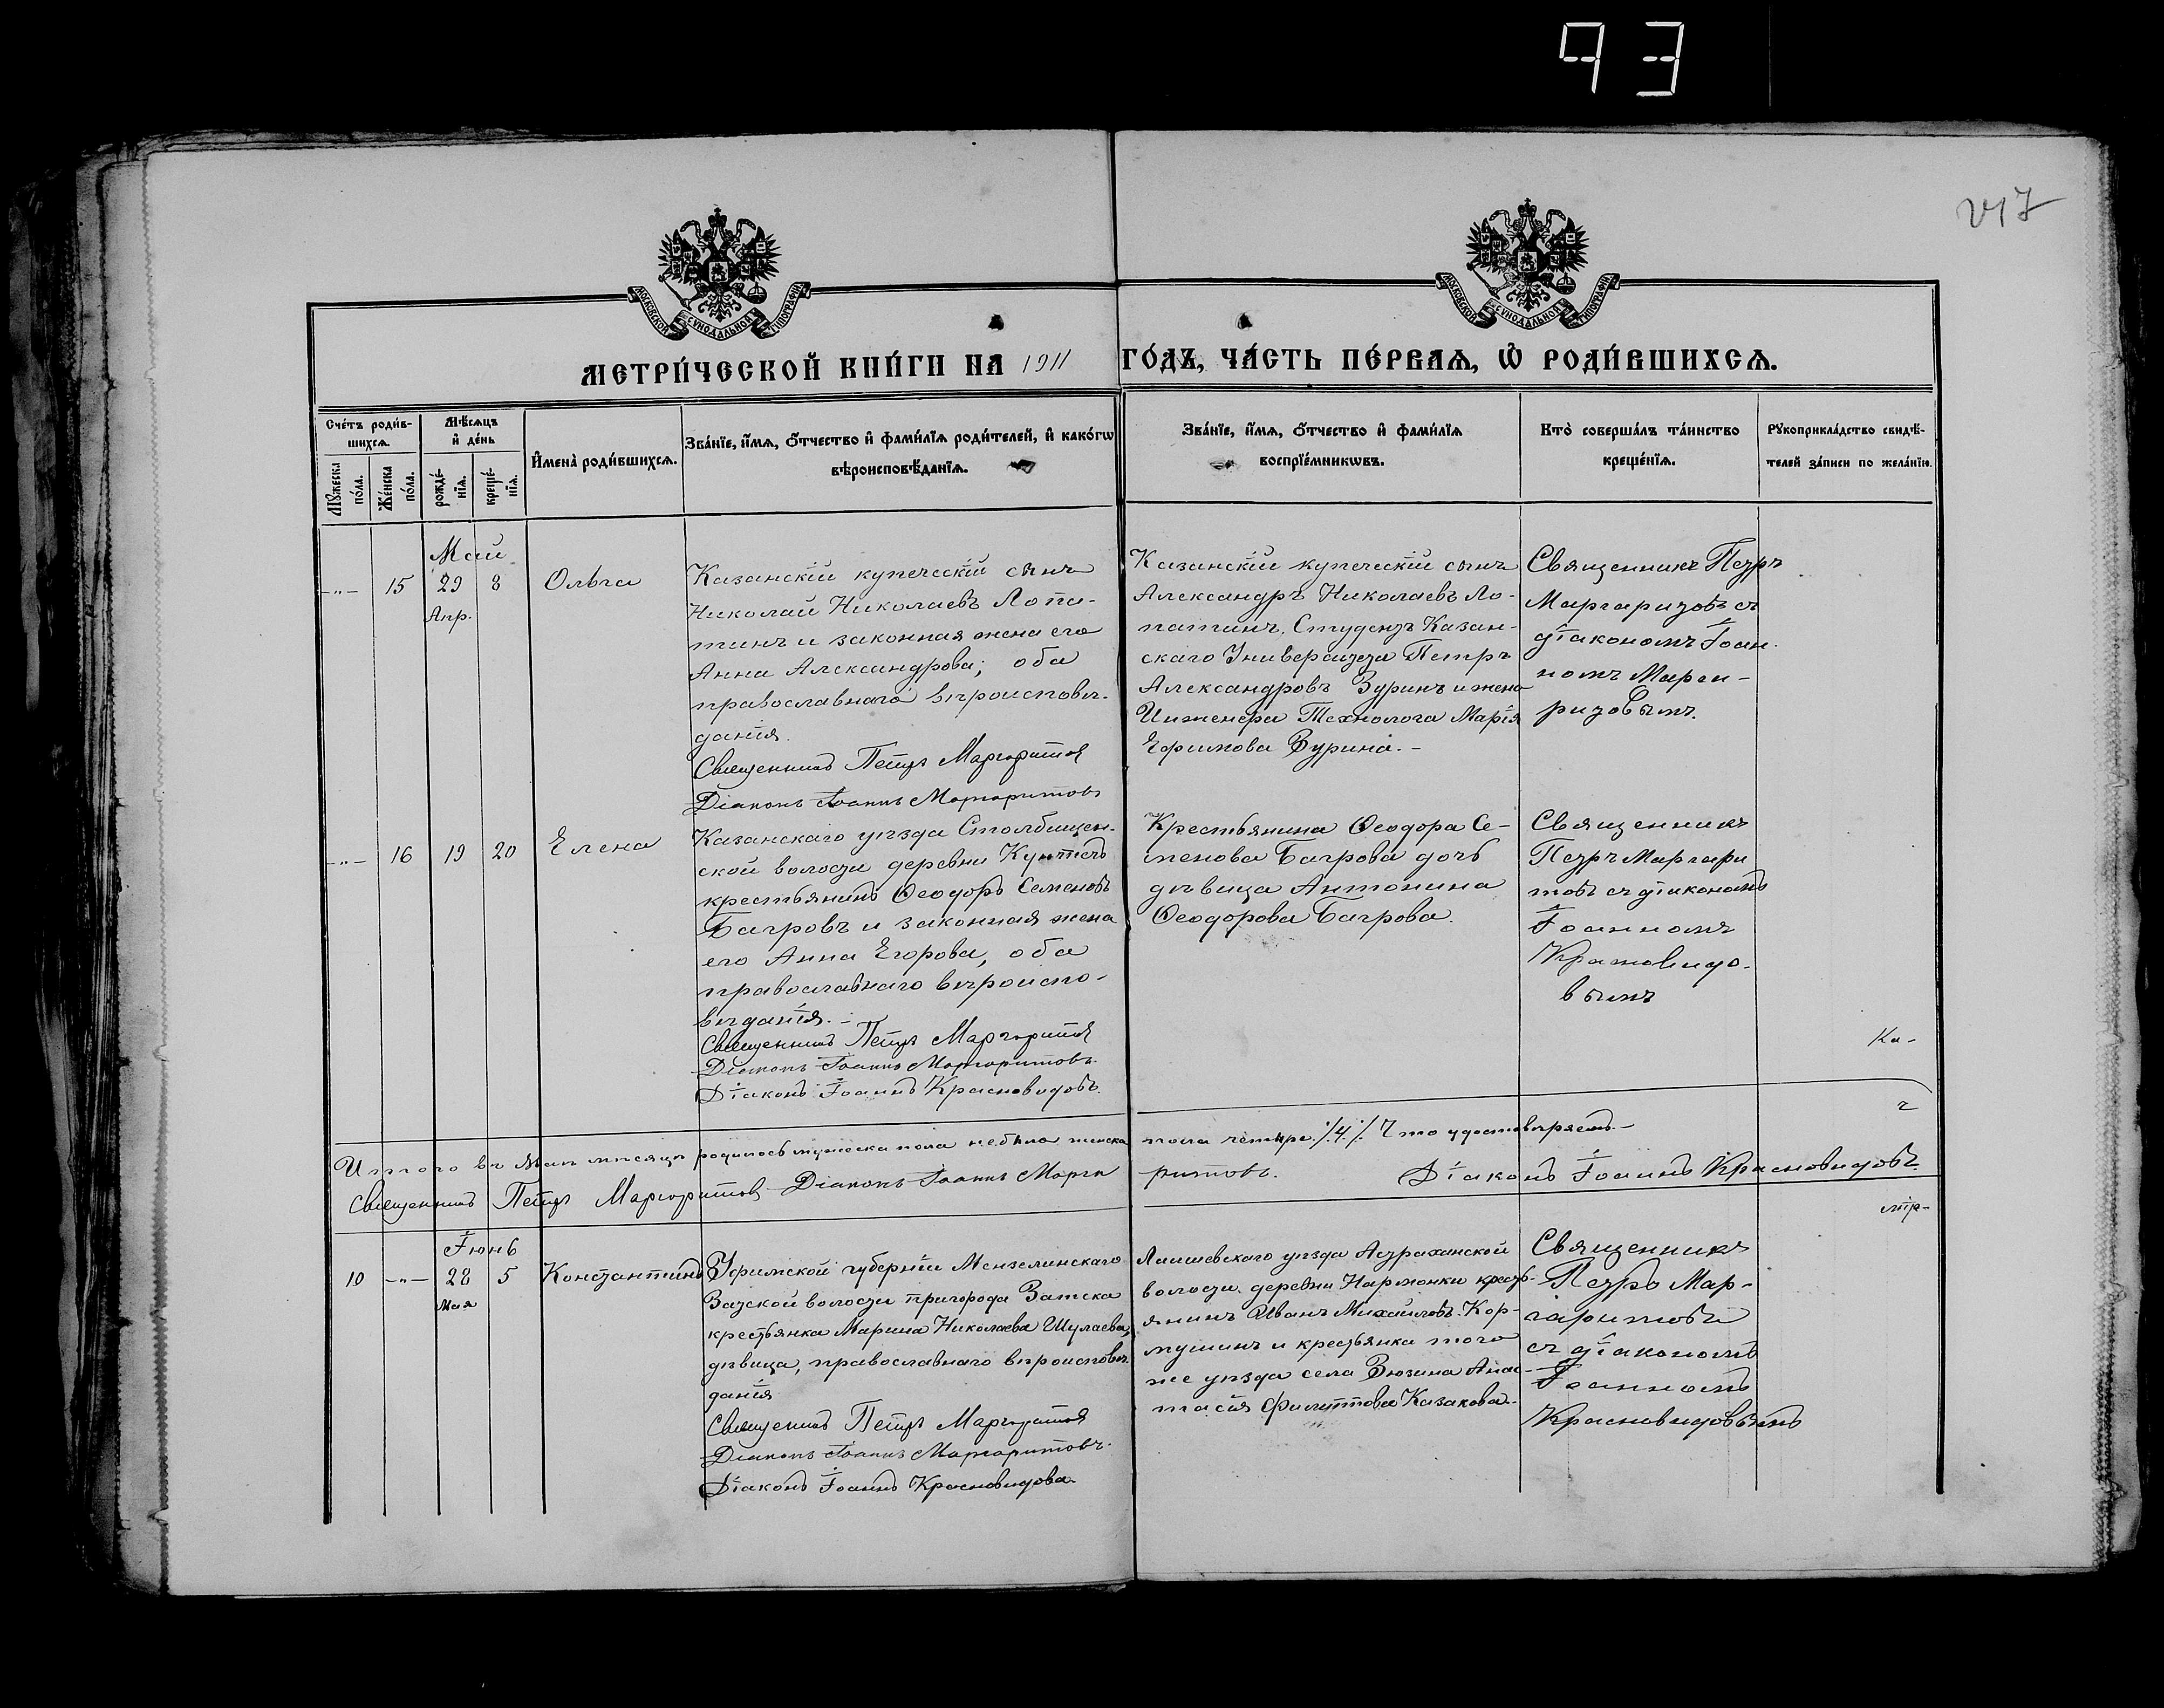 93
217
МОСКОВСКОЙ СѴНОДАЛЬНОЙ ТИПОГРАФІИ
МОСКОВСКОЙ СѴНОДАЛЬНОЙ ТИПОГРАФІИ
МЕТРИ́ЧЕСКОЙ КНИ́ГИ НА 1911 ГО́ДЪ, ЧА́СТЬ ПЕ́РВАѦ, Ѡ҆ РОДИ́ВШИХСѦ.
Сче́тъ роди́в-
шихсѧ.
Мꙋ́жеска
по́ла.
Же́нска
по́ла.
Мѣ́сѧцъ
и҆ де́нь
рожде́-
нїѧ.
креще́-
нїѧ.
И҆мена̀ роди́вшихсѧ.
Зва́нїе, и҆́мѧ, ѻ҆́тчество и҆ фами́лїѧ роди́телей, и҆ како́гѡ
вѣроисповѣ́данїѧ.
Зва́нїе, и҆́мѧ, ѻ҆́тчество и҆ фами́лїѧ
воспрїе́мникѡвъ.
Кто̀ соверша́лъ та́инство
креще́нїѧ.
Рꙋкоприкла́дство свидѣ́-
телей за́писи по жела́нїю.
Май
-"- 15 29 8
Апр.
Ольга
Казанскій купеческій сынъ
Николай Николаевъ Лопа-
тинъ и законная жена его
Анна Александрова; оба
православнаго вѣроисповѣ-
данія.
Священникъ Петръ Маргаритовъ
Діаконъ Іоаннъ Маргаритовъ
Казанскій купеческій сынъ
Александръ Николаевъ Ло-
патинъ, Студентъ Казан-
скаго Университета Петръ
Александровъ Зуринъ и жена
Инженера Технолога Марія
Ефимова Зурина.-
Священникъ Петръ
Маргаритовъ съ
діакономъ Іоан-
номъ Марга-
ритовымъ.
-"- 16 19 20
Елена
Казанскаго уѣзда Столбищен-
ской волости деревни
крестьянинъ Ѳеодоръ Семеновъ
Багровъ и законная жена
его Анна Егорова, оба
православнаго вѣроиспо-
вѣданія.-
Священникъ Петръ Маргаритовъ
Діаконъ Іоаннъ Маргаритовъ.
Діаконъ Іоаннъ Красновидовъ.
Крестьянина Ѳеодора Се-
менова Багрова дочь
дѣвица Антонина
Ѳеодорова Багрова.
Священникъ
Петръ Маргари
товъ съ діакономъ
Іоанномъ
Красновидо-
вымъ
Ка-
Итого въ Маѣ мѣсяцѣ родилось мужеска пола не было женска пола четыре ./.4./. Что удостовѣряемъ.-
г
Священникъ Петръ Маргаритовъ Діаконъ Іоаннъ Марга ритовъ. Діаконъ Іоаннъ Красновидовъ.
Іюнь
10 -"- 28 5
Мая
Константинъ
Уфимской губерніи Мензелинскаго
волости пригорода Заинска
крестьянка Марина Николаева Шулаева,
дѣвица, православнаго вѣроисповѣ-
данія
Священникъ Петръ Маргаритовъ
Діаконъ Іоаннъ Маргаритовъ.
Діаконъ Іоаннъ Красновидовъ
Лаишевскаго уѣзда Астраханской
волости деревни Нармонки кресть-
янинъ Иванъ Михайловъ Кор-
мушинъ и крестьянка того
же уѣзда села Зюзина Анас-
тасія Филиппова Казакова.-
Священникъ
Петръ Мар-
гаритовъ
съ діакономъ
Іоанномъ
Красновидовымъ